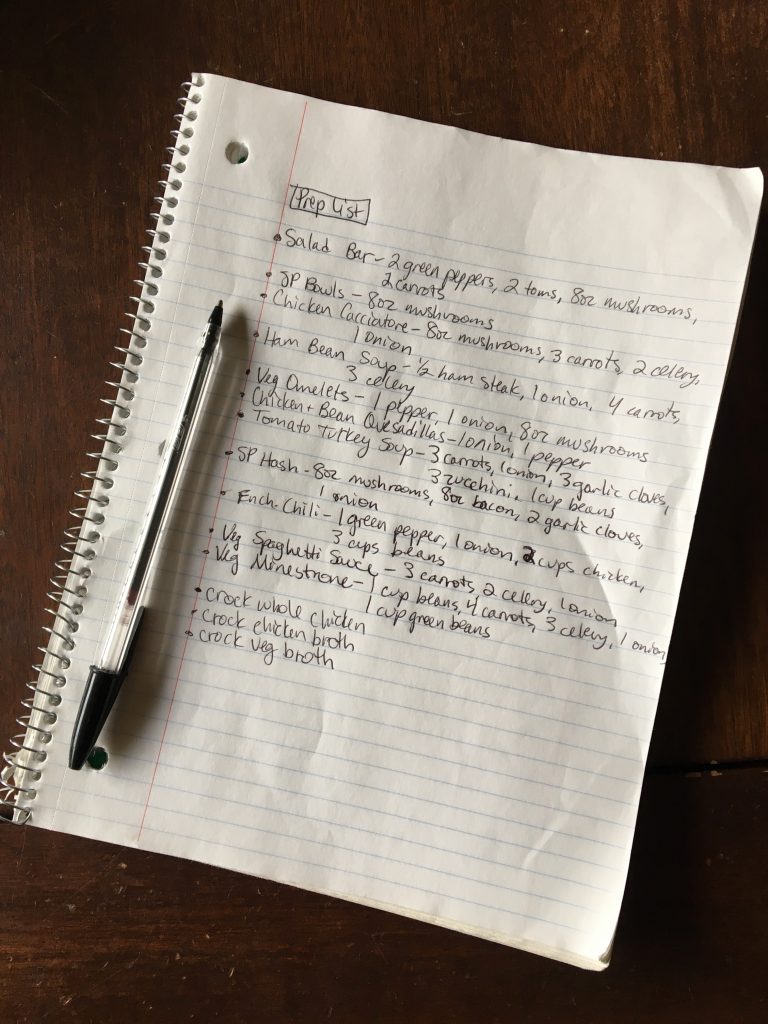 Prep List
• Salad Bar - 2 green peppers, 2 toms, 8oz mushrooms,
2 carrots
• SP Bowls - 8oz mushrooms
• Chicken Cacciatore - 8oz mushrooms, 3 carrots, 2 celery,
1 onion
• Ham Bean Soup - 1/2 ham steak, 1 onion, 4 carrots,
3 celery
• Veg Omelets - 1 pepper, 1 onion, 8oz mushrooms
• Chicken + Bean Quesadillas - 1 onion, 1 pepper
• Tomato Turkey Soup - 3 carrots, 1 onion, 3 garlic cloves,
3 zucchini, 1 cup beans
• SP Hash - 8oz mushrooms, 8oz bacon, 2 garlic cloves,
1 onion
• Ench. Chili - 1 green pepper, 1 onion, 2 cups chicken,
3 cups beans
• Veg Spaghetti Sauce - 3 carrots, 2 celery, 1 onion
• Veg Minestrone - 1 cup beans, 4 carrots, 3 celery, 1 onion,
1 cup green beans
• crock whole chicken
• crock chicken broth
• crock veg broth